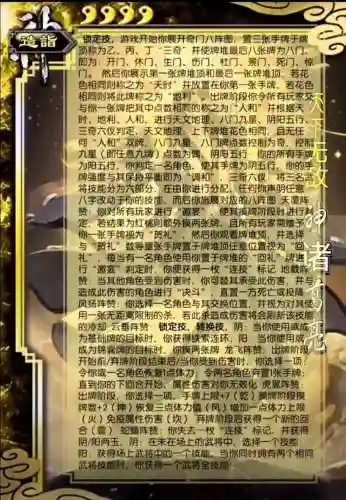 神
造詣
锁定技，游戏开始你展开奇门八阵图，置三张手牌于牌
顶称为乙、丙、丁“三奇”并使牌堆最后八张牌为八门，
即为：开门、休门、生门、伤门、杜门、景门、死门、惊
门。然后你展示第一张牌堆顶和最后一张牌堆顶，若花
色相同则称之为“天时”并放置在你第一张手牌，若花色
相同则将此牌称之为“地利”，出牌阶段你令所有玩家交
与你一张牌把其中点数相同的称之为“人和”并根据天
时、地利、人和，进行天文地理，八门九星，阴阳五行，
三奇六仪判定，天文地理：上下牌堆花色相同，且无任
何“人和”双牌，八门九星：八门牌点数控制为奇，控制
九星（即任意九牌）点数为偶，阴阳五行：你的所有手牌
为阳五行，你判定一名角色，使其手牌为阴五行，他的手
牌强度与其保持平衡即为“调和”，三奇六仪：将三名武
将技能分为六部分，在由你进行分配，任何你声明任意
八字改动于你的技能，而后你施展对应的八阵图 天覆阵
赞：你对所有玩家进行“邀宴”，使其摸牌阶段时进行判
定，若结果为红桃则额外摸两张牌，且所有玩家需赠予
你一张手牌视为“贺礼”，然后你观看牌堆顶，并选择
与“贺礼”数等量张手牌置于牌堆顶任意位置视为“回
礼”，每当有一名角色使用你置于牌堆的“回礼”牌进
行“邀宴”判定时，你便获得一枚“连技”标记 地载阵
赞：当其他角色受到伤害时，你可替其承受此伤害，并与
造成此伤害的角色进行“决斗”，直置一方死亡或投降
风扬阵赞：你选择一名角色与其交换位置，并视为对其使
用一张无距离限制的杀，若此杀造成伤害将会刷新该技能
的冷却 云垂阵赞：锁定技，转换技，阴：当你使用或成
为基础牌的目标时，你获得锁索连环，阳：当你使用或
成为锦囊牌的目标时，你摸两张牌 龙飞阵赞：出牌阶段
开始前/弃牌阶段结束后/当你受到伤害时，你选择一项：
令你或一名角色恢复1点体力；令两名角色弃置1张手牌；
直到你的下回合开始，属性伤害对你无效化 虎翼阵赞：
出牌阶段，你选择一项，手牌上限+7（乾）摸牌阶段摸
牌数+2（坤）恢复三点体力值（风）增加一点体力上限
（火）免疫属性伤害（坎）弃牌阶段后获得一个新的回
合（震）蛇蟠阵赞：你失去一枚“连技”标记，并获得
阴/阳两玉，阴：在未在场上的武将中，选择一个技能
阳：获得场上武将中的一个技能，当你同时拥有两个相同
武将技能时，你获得一个武将全技能
神
者